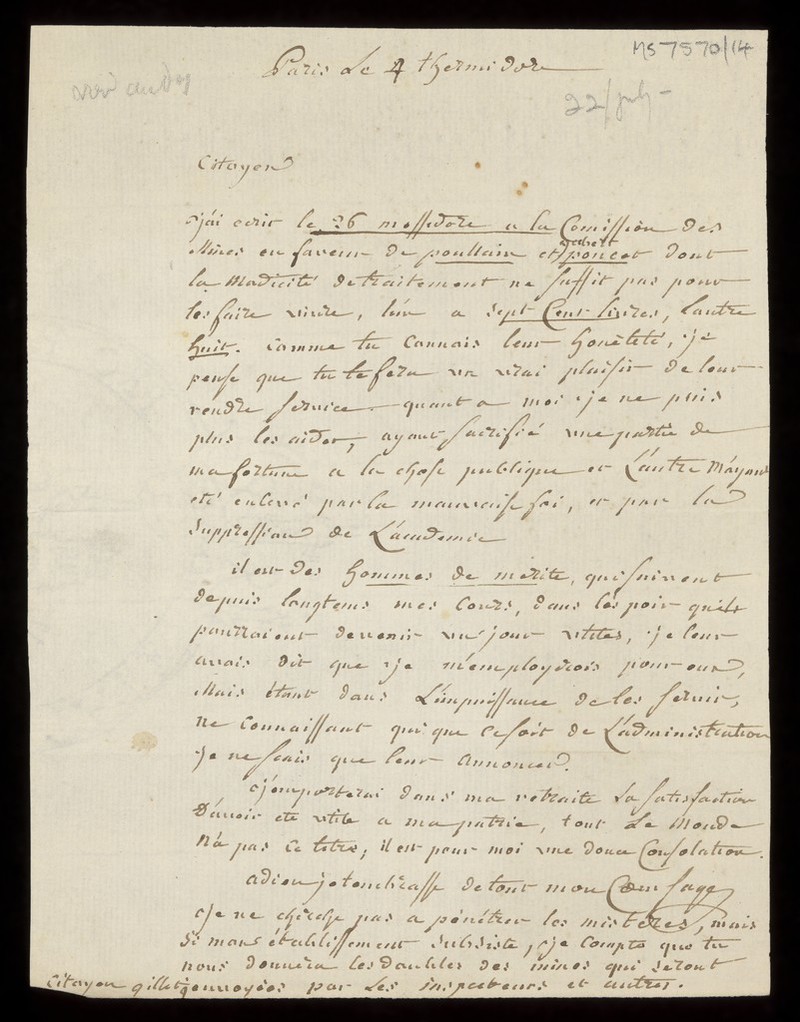 MS 7570/14
Paris Le 4 thermidore
22/july -
Citoyen
j'ai ecrit le 26 messidore a la Comission des
Mines en faveur de poullain et poncet dont
la Modicité de traitement ne suffit pas pour
les faire vivre, l'un a sept Cent livres, l'autre
huit. comme tu connais leur honêteté, je
pense que tu te fera un vrai plaisir de leur
rendre service. quant a moi je ne puis
plus les aider, ayant sacrifié une partie de
ma fortune a la chose publique et L'autre M'ayant
eté enlevé par la mauvaise foi, et par la
Suppression de L'academie
il est des hommes de merite, qui suivent
depuis longtems mes Cours, dans l'espoir qu'ils
pourraient devenir un jour utiles, je leur
avais dit que je m'employerois pour eux,
Mais étant dans L'impuissance de les servir,
ne connaissant qui que ce soit de L'administration
je ne scais que leur annoncer.
j'emporterai dans ma retraite La satisfaction
D'avoir eté utile a ma patrie, tout Le Monde
N'a pas ce titre, il est pour moi une douce Consolation.
adieu je t'embrasse de tout mon Cœur Sage
je ne cherche pas a pénétrer les mistères, mais
si mon établissement subsiste, je compte que tu
nous donnera les doubles des mines qui seront
envoyées par Les inspecteurs et autres.
Citoyen gillet